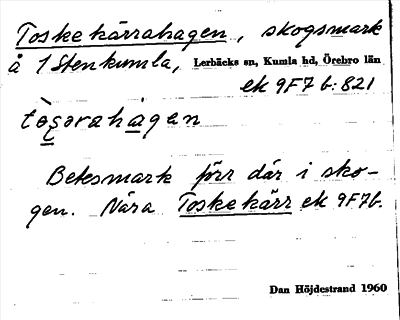 Toskekärrahagen, skogsmark
å 1 Stenkumla, Lerbäcks sn, Kumla hd, Örebro län
ek 9F7 b:821
tò̤ʂərahàgen
Betesmark förr där i sko-
gen. Nära Toskekärr ek 9F7b.
Dan Höjdestrand 1960